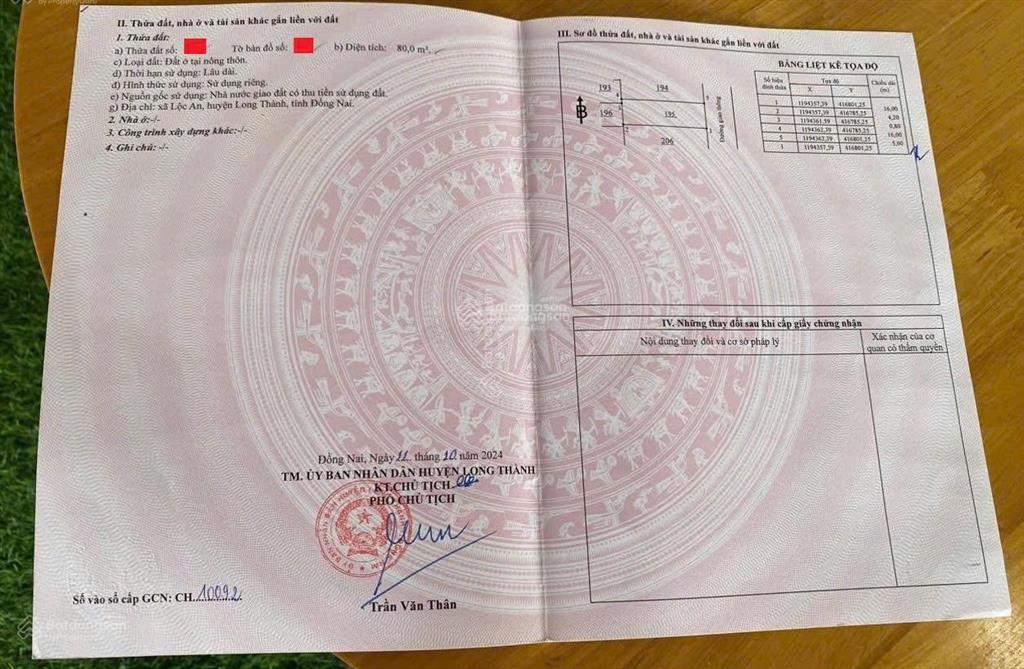 II. Thửa đất, nhà ở và tài sản khác gắn liền với đất
1. Thửa đất:
a) Thửa đất số: Tờ bản đồ số: b) Diện tích: 80,0 m².
c) Loại đất: Đất ở tại nông thôn.
d) Thời hạn sử dụng: Lâu dài.
đ) Hình thức sử dụng: Sử dụng riêng.
e) Nguồn gốc sử dụng: Nhà nước giao đất có thu tiền sử dụng đất.
g) Địa chỉ: xã Lộc An, huyện Long Thành, tỉnh Đồng Nai.
2. Nhà ở:-/-
3. Công trình xây dựng khác:-/-
4. Ghi chú: -/-
Đồng Nai, Ngày 11 tháng 10 năm 2024
TM. ỦY BAN NHÂN DÂN HUYỆN LONG THÀNH
KT.CHỦ TỊCH
PHÓ CHỦ TỊCH
Trần Văn Thân
Số vào sổ cấp GCN: CH.10092
III. Sơ đồ thửa đất, nhà ở và tài sản khác gắn liền với đất
BẢNG LIỆT KÊ TỌA ĐỘ
Số hiệu đỉnh thửa Tọa độ Chiều dài (m)
X Y
1 1194357,39 416801,25
16,00
2 1194357,39 416785,25
4,20
3 1194361,59 416785,25
0,80
4 1194362,39 416785,25
16,00
5 1194362,39 416801,25
5,00
1 1194357,39 416801,25
193 194
196 195
206
Đường giao thông
B
IV. Những thay đổi sau khi cấp giấy chứng nhận
Nội dung thay đổi và cơ sở pháp lý
Xác nhận của cơ
quan có thẩm quyền